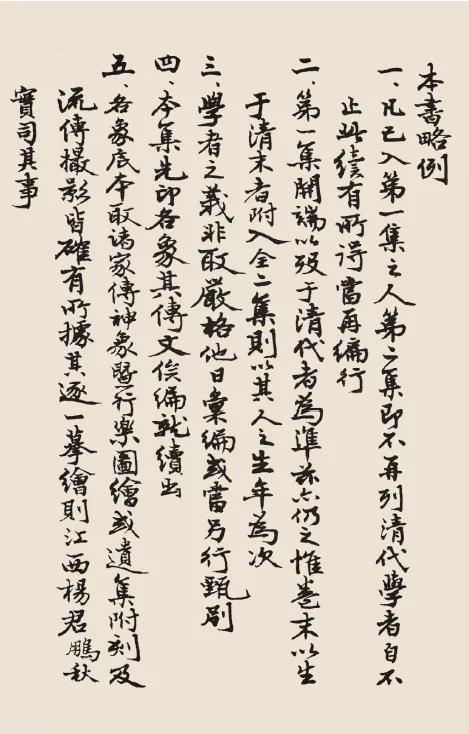 本書略例
一、凡已入第一集之人第二集即不再列清代學者自不
止此續有所得當再編行
二、第一集開端以歿于清代者為準茲亦仍之惟卷末以生
于清末者附入全二集則以其人之生年為次
三、學者之義非取嚴格他日彙編或當另行甄別
四、本集先印各象其傳文俟編就續出
五、各象底本取諸家傳神象暨行樂圖繪或遺集附刻及
流傳撮影皆確有所據其逐一摹繪則江西楊君鵬秋
實司其事